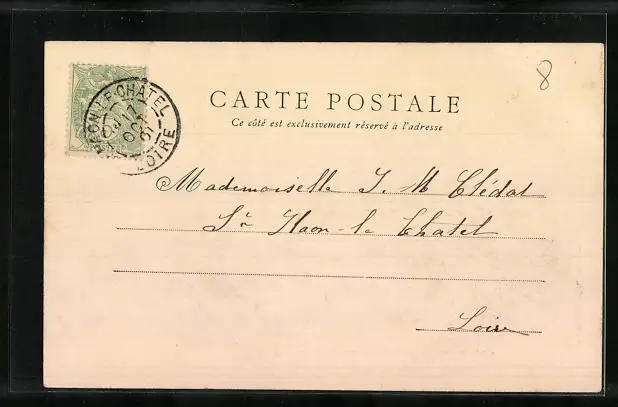 8
CARTE POSTALE
Ce côté est exclusivement réservé à l'adresse
HAON-LE-CHATEL
17
OCT
01
LOIRE
Mademoiselle J. M Clédat
St Haon-le Chatel
Loire